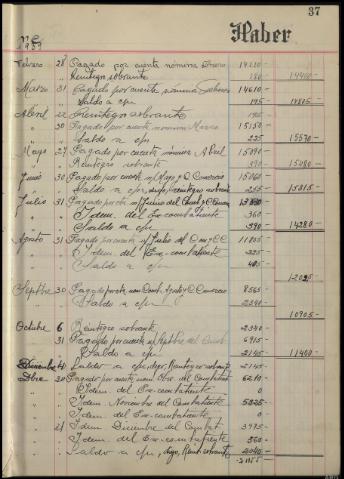 37
Haber
1939
Febrero 28 Pagado por cuenta nómina Enero 14220-
Reintegro sobrante 180 14400-
Marzo 31 Pagado por cuenta nómina 14610
Saldo a c/n 195 14805-
Abril Reintegro sobrante 195
" 30 Pagado por cuenta nómina Marzo 15150
Saldo a c/n 225 15570-
Mayo 27 Pagado por cuenta nómina Abril 15090
" Reintegro sobrante 15080-
Junio 30 Pagado por cuenta n/ Mayo y C. Comercio 15060
" Saldo a c/n, reintegro sobrante 255 15315-
Julio 31 Pagado por cuenta n/ Junio del
" Idem. del Ex-combatiente 360
" Saldo a c/n 390 14280-
Agosto 31 Pagado por cuenta n/ Julio 11805
" Idem. del Ex-combatiente 225
" Saldo a c/n
12025
Septbre 30 Pagado por cta 8565
" Saldo a c/n 2340
10905-
Octubre 6 Reintegro sobrante 2340
" 31 Pagado por cuenta n/ Septbre del Comb. 6915
" Saldo a c/n 2145 11400
Diciembre Saldo a c/n, Reintegro sobrante 2145
Dbre 20 Pagado por cuenta nómina Obre. del Combatiente 6210
" Idem del Ex-combatiente 0
" Idem Noviembre del Combatiente
" Idem del Ex-combatiente 0
" 21 Idem Diciembre del Combat. 3975
" Idem. del Ex-combatiente 360
" Saldo a c/n, Reint. sobrante 2040